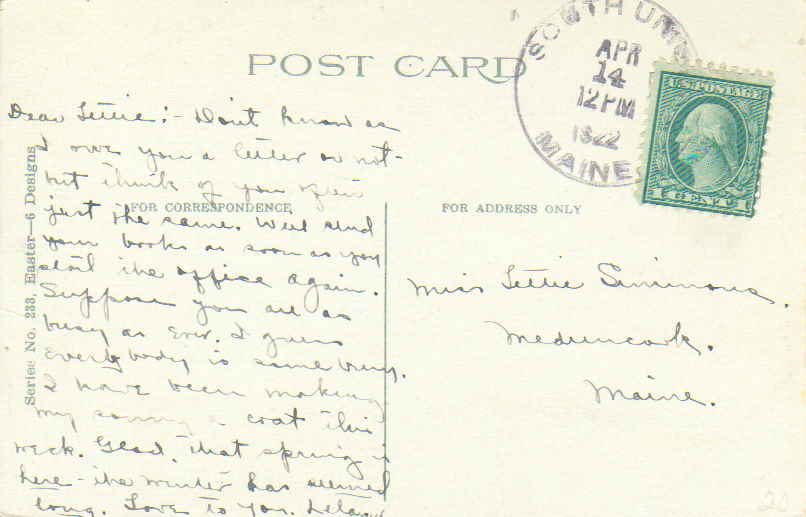 POST CARD
SOUTH UNION
APR
14
12 PM
1922
MAINE
U.S. POSTAGE
Series No. 233, Easter—6 Designs
FOR CORRESPONDENCE
FOR ADDRESS ONLY
Dear Lettie:- Don't know as
I owe you a letter or not-
but think of you
just the same. Will send
your books as soon as you
start the office again.
Suppose you are as
busy as ever. I guess
everybody is some busy.
I have been making
my a coat this
week. Glad that spring is
here - the winter has seemed
long. Love to you.
Miss Lettie Simmons,
Meduncook,
Maine.